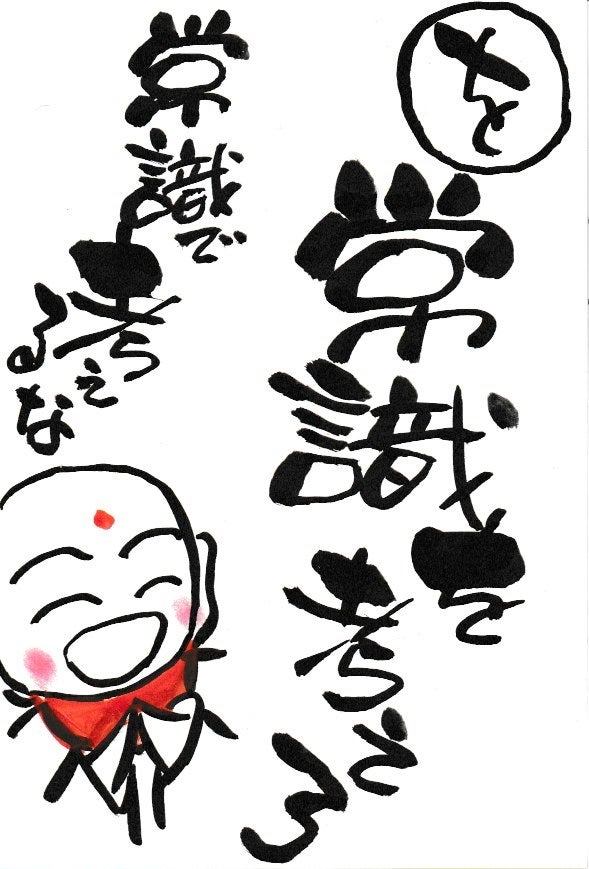 常識を
考える
常識で
考える
な